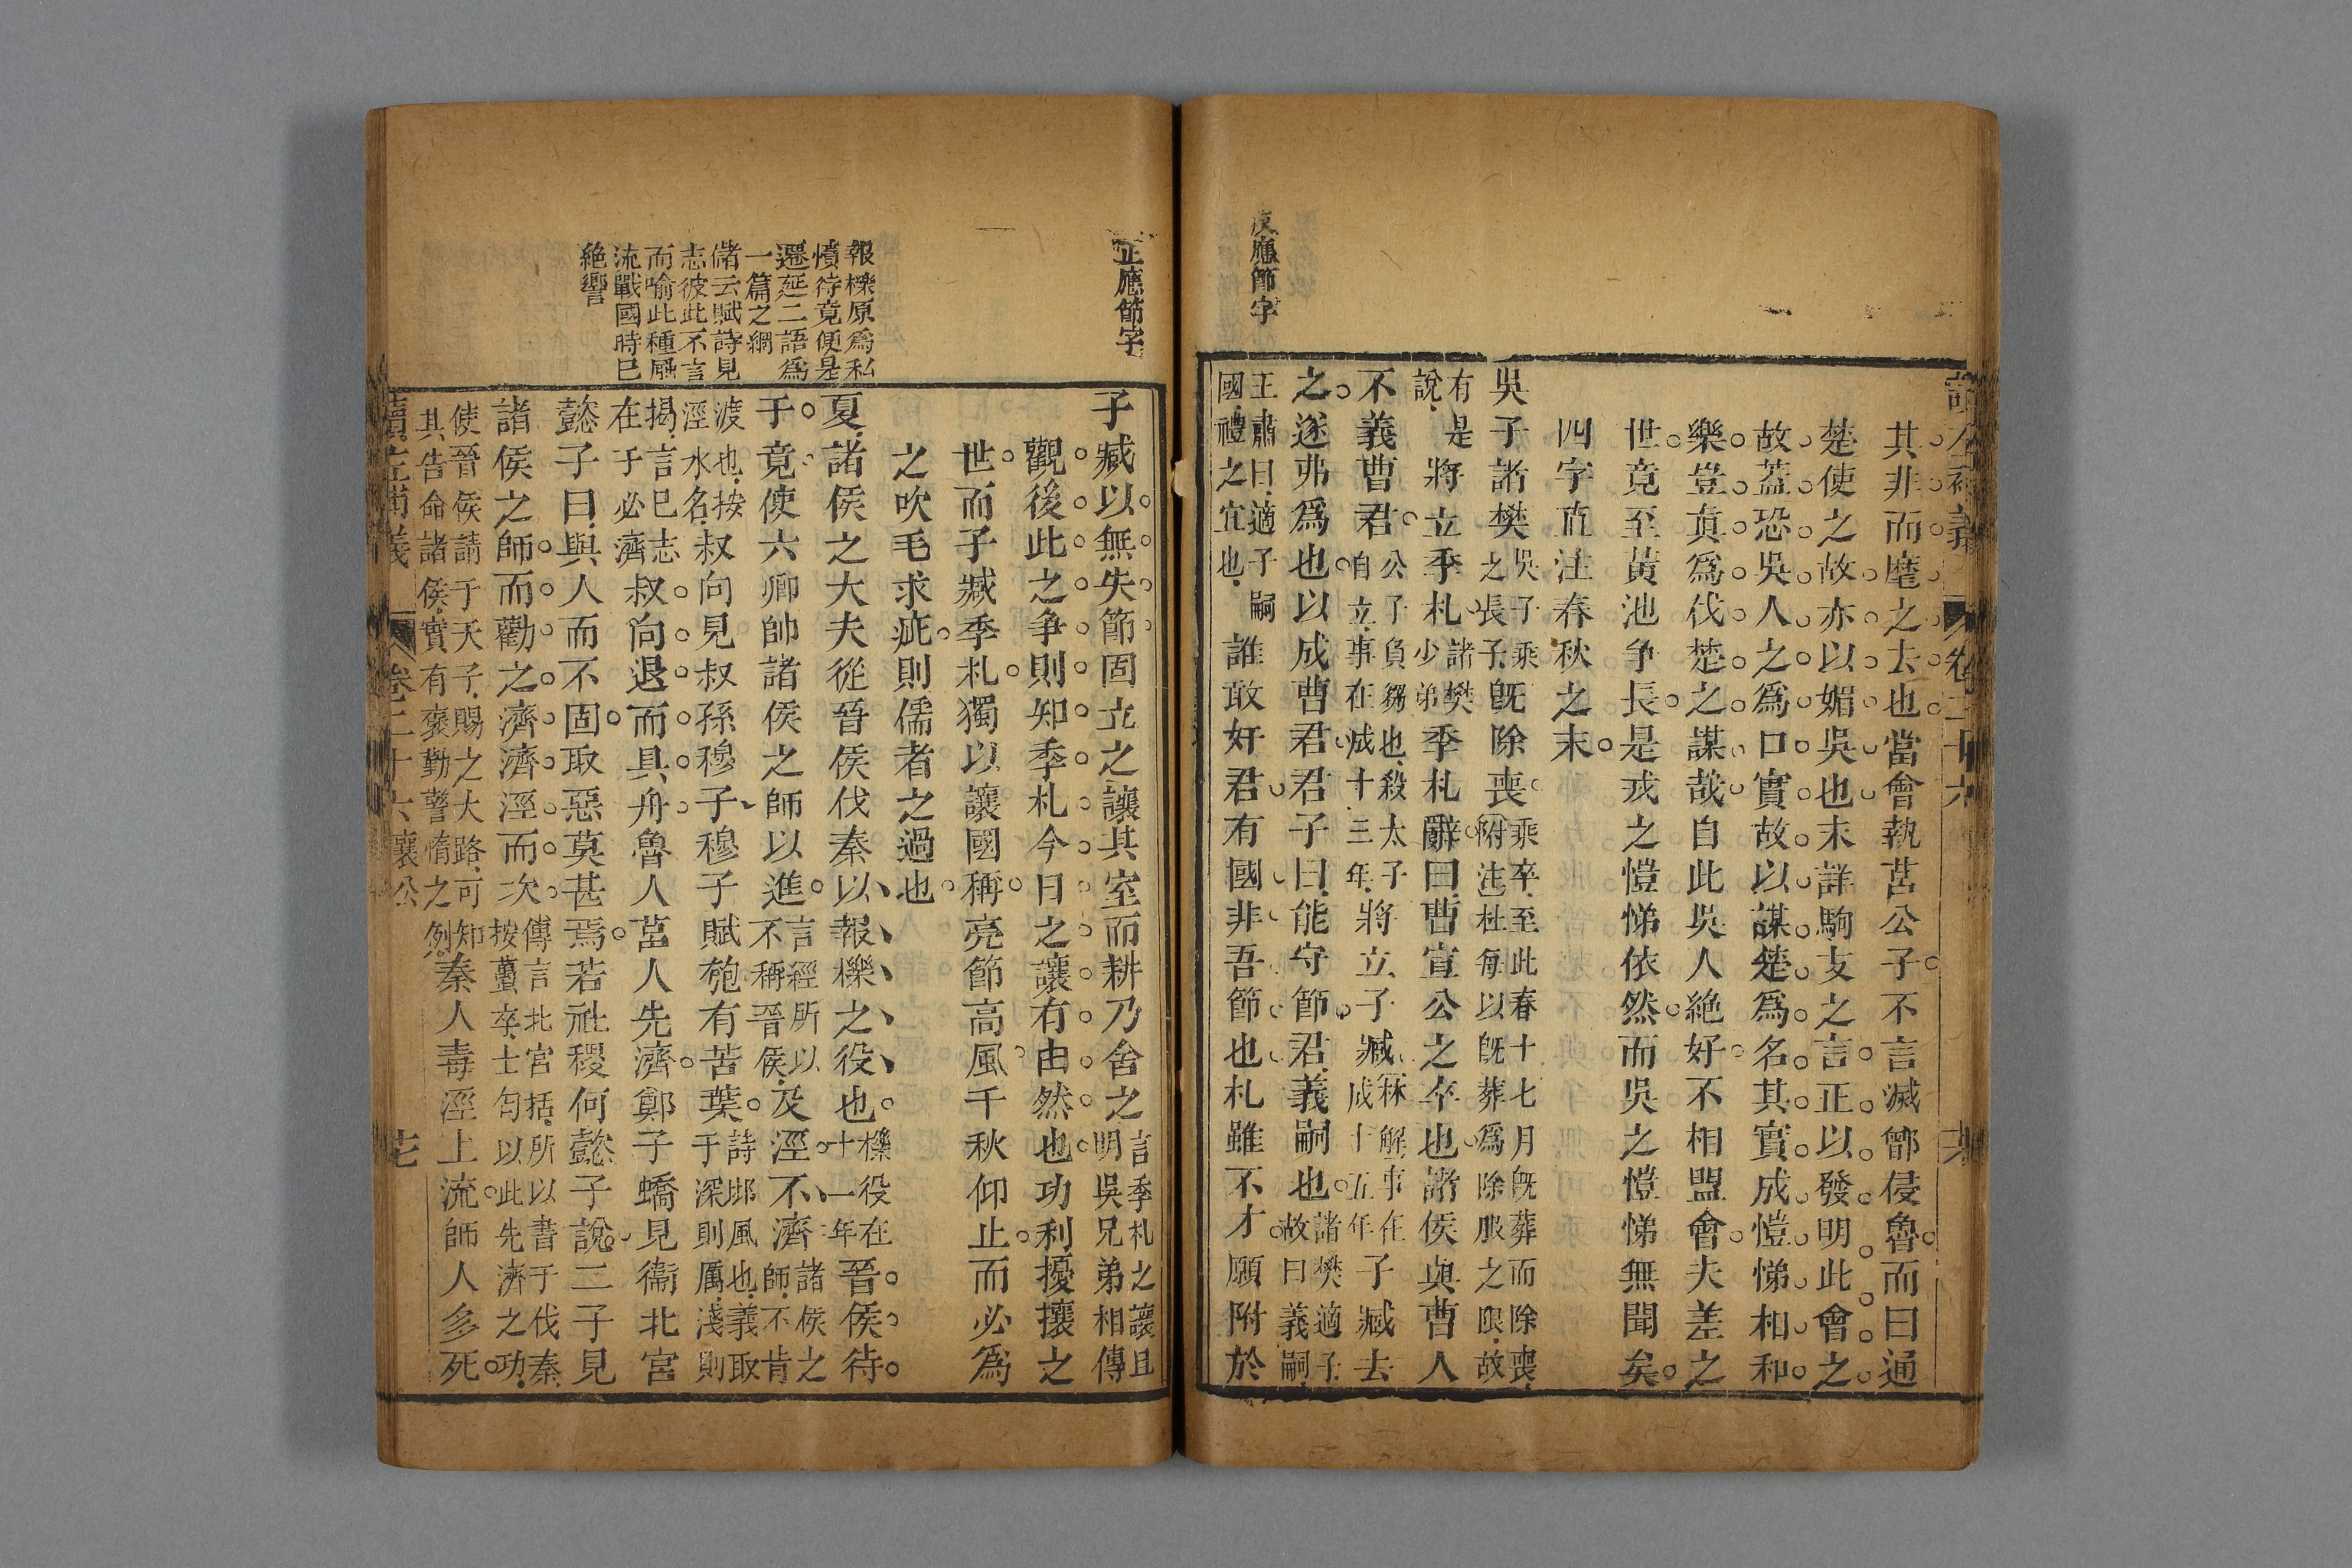 讀左補義 卷二十六
其非而麾之去也當會執莒公子不言滅鄫侵魯而曰通
楚使之故亦以媚吳也末詳駒支之言正以發明此會之
故蓋恐吳人之爲口實故以謀楚爲名其實成愷悌相和
樂豈真爲伐楚之謀哉自此吳人絕好不相盟會夫差之
世竟至黃池争長是戎之愷悌依然而吳之愷悌無聞矣
四字直注春秋之末
吳子諸樊吳子乘之長子旣除喪乘卒至此春十七月旣葬而除喪附注杜每以旣葬爲除服之限故
有是說將立季札諸樊少弟季札辭曰曹宣公之卒也諸侯與曹人
不義曹君公子負芻也殺太子自立事在成十三年將立子臧解事在成十五年子臧去
之遂弗爲也以成曹君君子曰能守節君義嗣也諸樊適子故曰義嗣
王肅曰適子嗣國禮之宜也誰敢奸君有國非吾節也札雖不才願附於
反應節字
正應節字
子臧以無失節固立之讓其室而耕乃舍之言季札之讓且明吳兄弟相傳
觀後此之争則知季札今日之讓有由然也功利擾攘之
世而子臧季札獨以讓國稱亮節高風千秋仰止而必爲
之吹毛求疵則儒者之過也
夏諸侯之大夫從晉侯伐秦以報櫟之役也櫟役在十一年晉侯待
于竟使六卿帥諸侯之師以進言經所以不稱晉侯及涇不濟諸侯之師不肯
渡也按涇水名叔向見叔孫穆子穆子賦匏有苦葉詩邶風也義取于深則厲淺則
揭言巳志在于必濟叔向退而具舟魯人莒人先濟鄭子蟜見衞北宮
懿子曰與人而不固取惡莫甚焉若社稷何懿子說二子見
諸侯之師而勸之濟濟涇而次傳言北宮括所以書于伐秦按蠆卒士匄以此先濟之功
使晉侯請于天子賜之大路可知其告命諸侯實有褒勤警惰之例秦人毒涇上流師人多死
報櫟原爲私
憤待竟便是
遷延二語爲
一篇之綱
儲云賦詩見
志彼此不言
而喻此種風
流戰國時巳
絕響
讀左補義 卷二十六 襄公